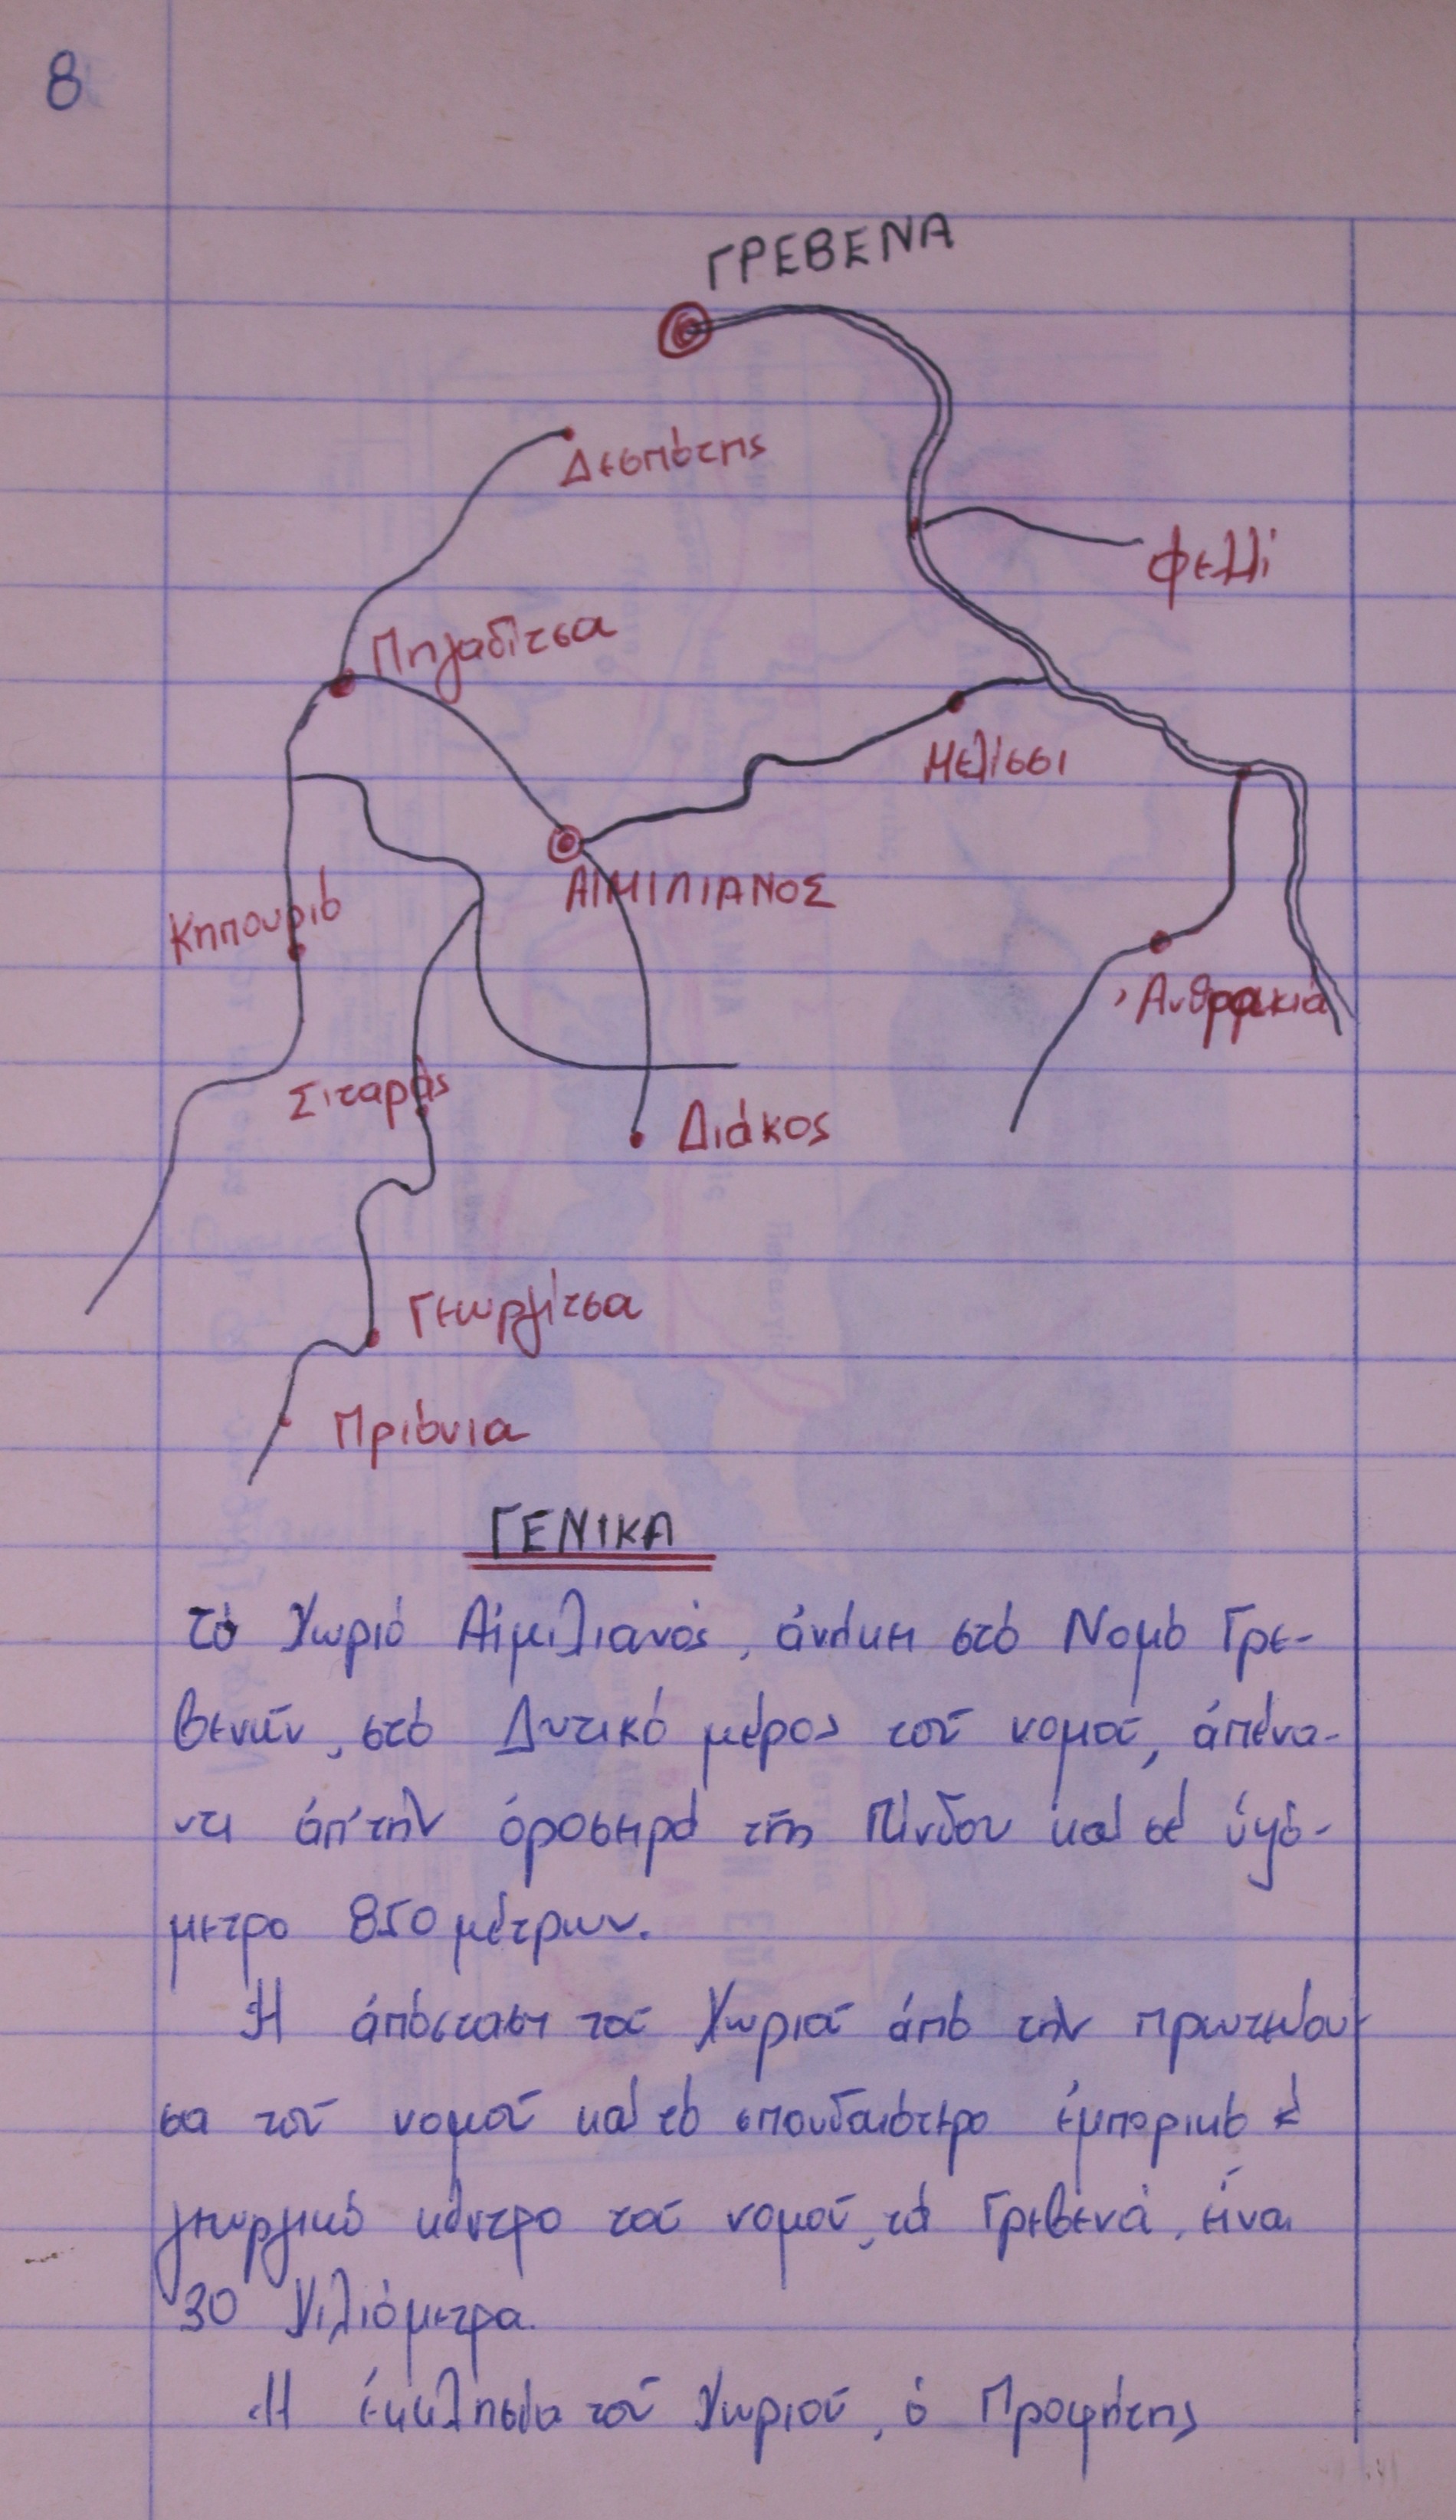 8
ΓΡΕΒΕΝΑ
Δεσπότης
Φελλί
Πηγαδίτσα
Μελίσσι
ΑΙΜΙΛΙΑΝΟΣ
Κηπουριό
Ἀνθρακιά
Σιταράς
Διάκος
Γεωργίτσα
Πριόνια
ΓΕΝΙΚΑ
Τό χωριό Αἰμιλιανός, ἀνήκει στό Νομό Γρε-
βενῶν, στό Δυτικό μέρος τοῦ νομοῦ, ἀπένα-
ντι ἀπ' τήν ὀροσειρά τῆς Πίνδου καί σέ ὑψό-
μετρο 850 μέτρων.
Ἡ ἀπόσταση τοῦ χωριοῦ ἀπό τήν πρωτεύου-
σα τοῦ νομοῦ καί τό σπουδαιότερο ἐμπορικό κ
γεωργικό κέντρο τοῦ νομοῦ, τά Γρεβενά, εἶναι
30 χιλιόμετρα.
Ἡ ἐκκλησία τοῦ χωριοῦ, ὁ Προφήτης